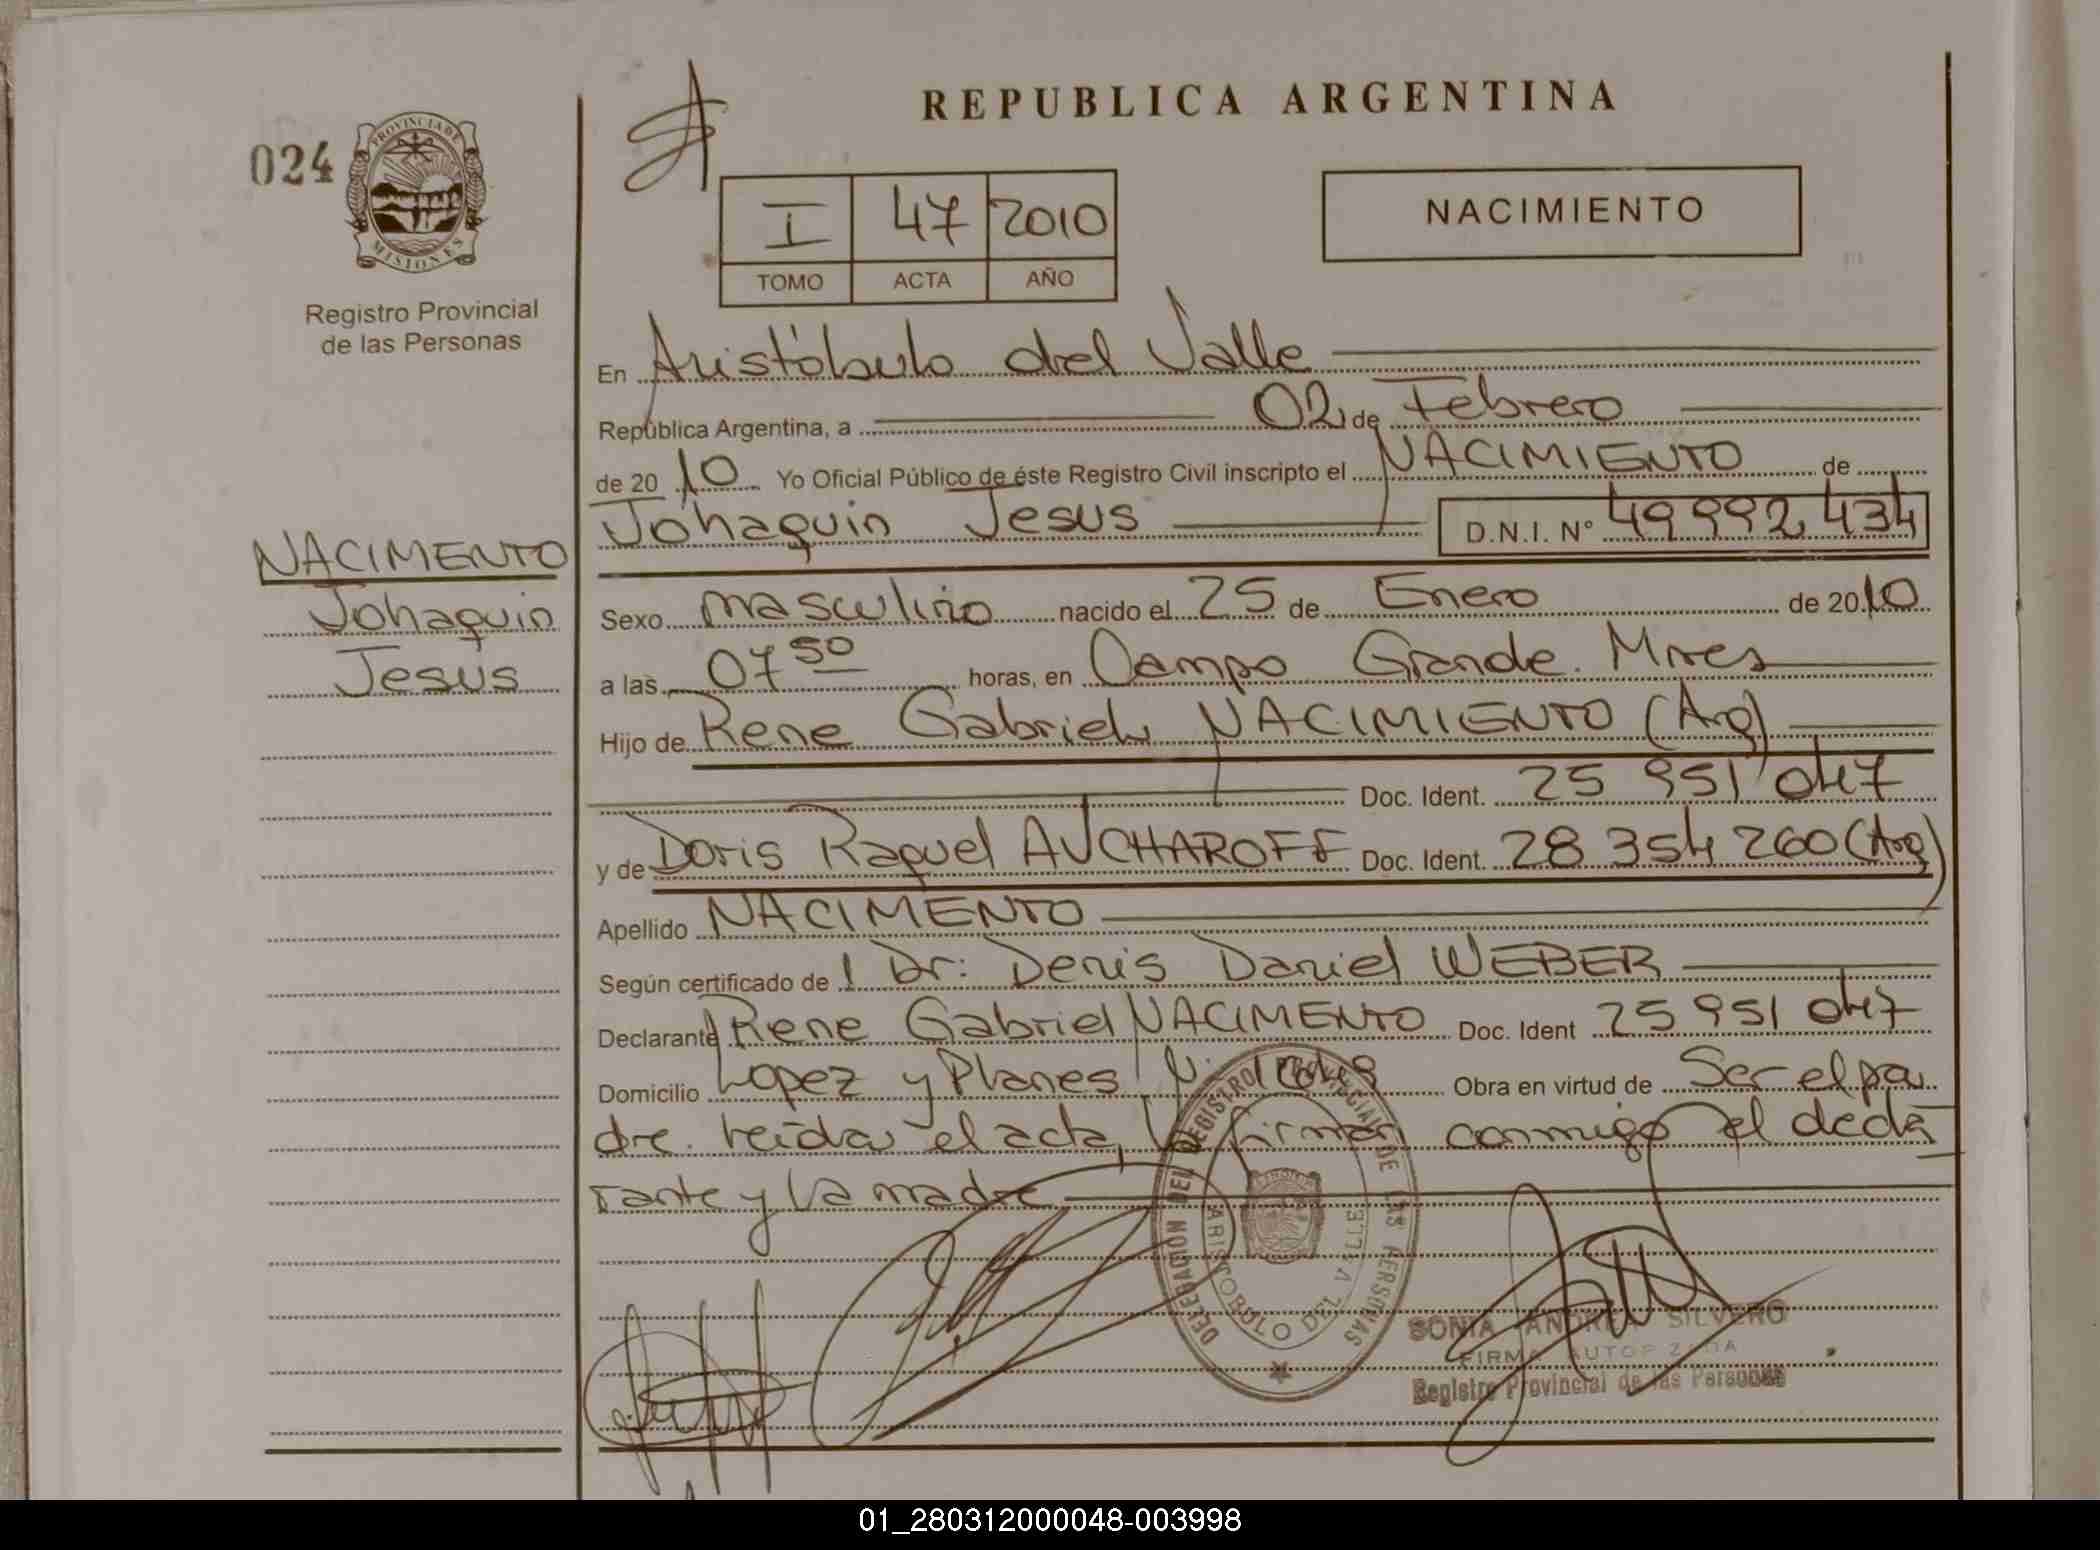 REPUBLICA ARGENTINA
024
PROVINCIA DE
MISIONES
Registro Provincial
de las Personas
I 47 2010
TOMO ACTA AÑO
NACIMIENTO
En Aristóbulo del Valle
República Argentina, a 02 de Febrero
de 2010 Yo Oficial Público de éste Registro Civil inscripto el NACIMIENTO de
Johaquin Jesus D.N.I. Nº 49 992 434
NACIMENTO
Johaquin
Jesus
Sexo masculino nacido el 25 de Enero de 2010
a las 07 50 horas, en Campo Grande. Mnes
Hijo de Rene Gabriel NACIMIENTO (Arg)
Doc. Ident. 25 951 047
y de Doris Raquel AUCHAROFF Doc. Ident. 28 354 260 (Arg)
Apellido NACIMENTO
Según certificado de l Dr: Denis Daniel WEBER
Declarante Rene Gabriel NACIMENTO Doc. Ident 25 951 047
Domicilio Lopez y Planes Obra en virtud de Ser el pa
dre. Leida el acta, la firman conmigo el decla
rante y la madre
DELEGACION DEL REGISTRO PROVINCIAL DE LAS PERSONAS
ARISTOBULO DEL VALLE
SONIA ANDREA SILVERO
FIRMA AUTORIZADA
Registro Provincial de las Personas
01_280312000048-003998